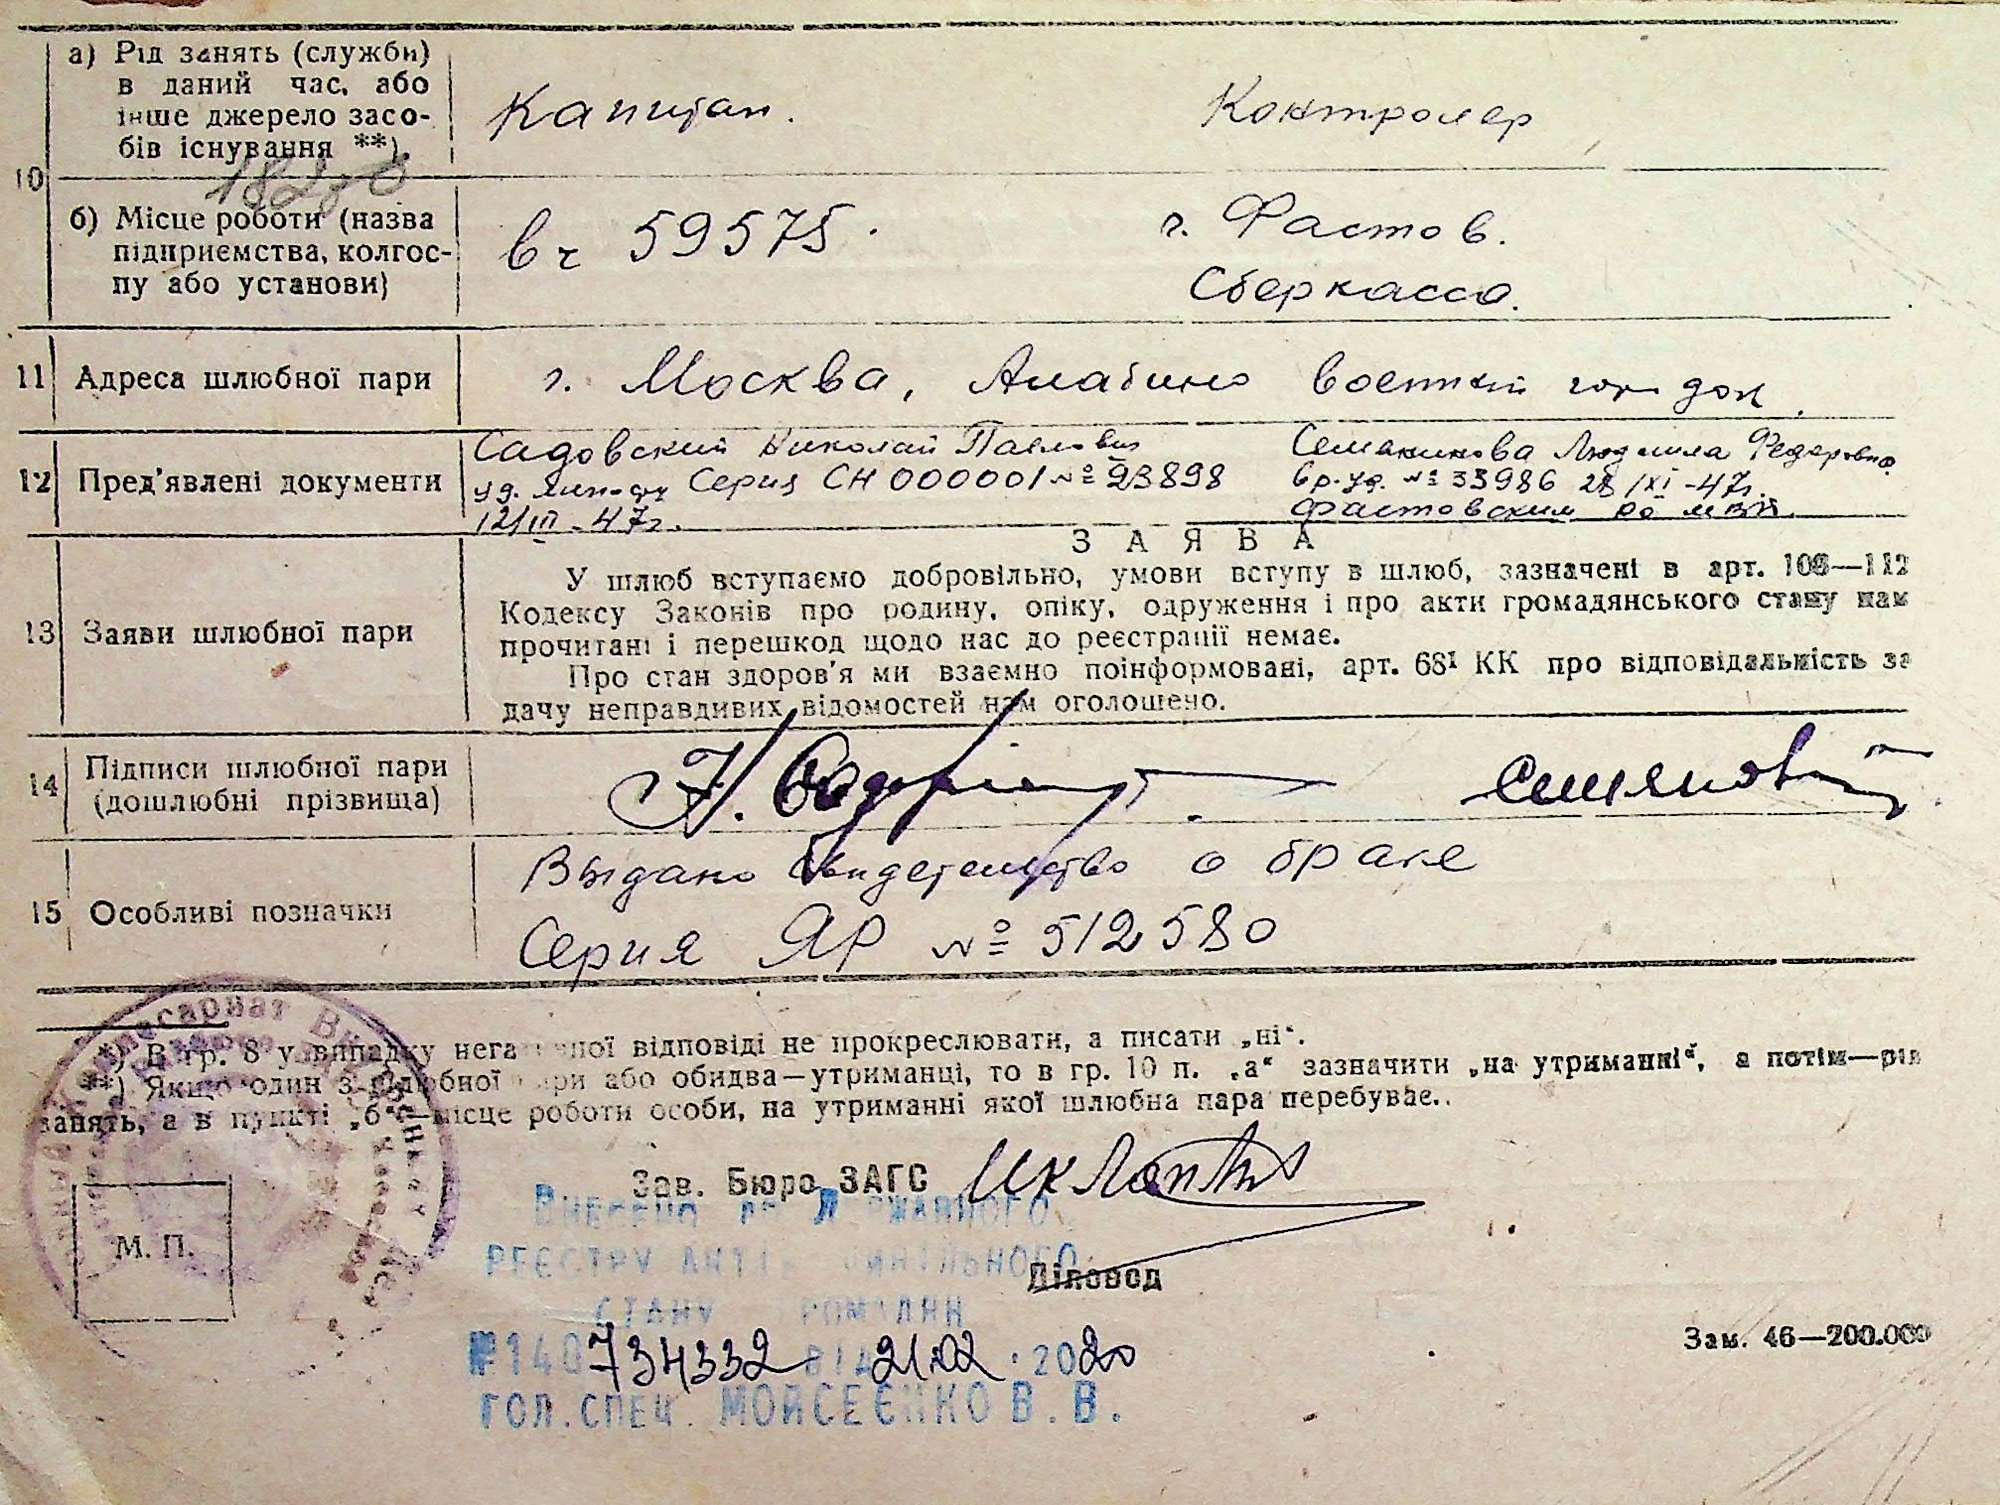 10
а) Рід занять (служби)
в даний час, або
інше джерело засо-
бів існування **).
Капитан.
Контролер
б) Місце роботи (назва
підприємства, колгос-
пу або установи)
вч 59575.
г. Фастов.
Сберкасса.
11 Адреса шлюбної пари
г. Москва, Алабино военный городок.
12 Пред'явлені документи
Садовский Николай Павлович
уд. личности Серия СН 000001 № 93898
12/III-47г.
Людмила Федоровна
вр. уд. № 33986 28/XI-47г.
Фастовским РО МВД.
13 Заяви шлюбної пари
ЗАЯВА
У шлюб вступаємо добровільно, умови вступу в шлюб, зазначені в арт. 106—112
Кодексу Законів про родину, опіку, одруження і про акти громадянського стану нам
прочитані і перешкод щодо нас до реєстрації немає.
Про стан здоров'я ми взаємно поінформовані, арт. 68¹ КК про відповідальність за
дачу неправдивих відомостей нам оголошено.
14 Підписи шлюбної пари
(дошлюбні прізвища)
15 Особливі позначки
Выдано свидетельство о браке
Серия ЯР № 512580
*) В гр. 8 у випадку негативної відповіді не прокреслювати, а писати „ні“.
**) Якщо один з шлюбної пари або обидва—утриманці, то в гр. 10 п. „а“ зазначити „на утриманні“, а потім—рід
занять, а в пункті „б“—місце роботи особи, на утриманні якої шлюбна пара перебуває.
Зав. Бюро ЗАГС
ВНЕСЕНО ДО ДЕРЖАВНОГО
РЕЄСТРУ АКТІВ ЦИВІЛЬНОГО
Діловод
М. П.
СТАНУ ГРОМАДЯН
Зам. 46—200.000
№140734332 ВІД 21.02.2020
ГОЛ.СПЕЦ. МОЙСЕЄНКО В.В.